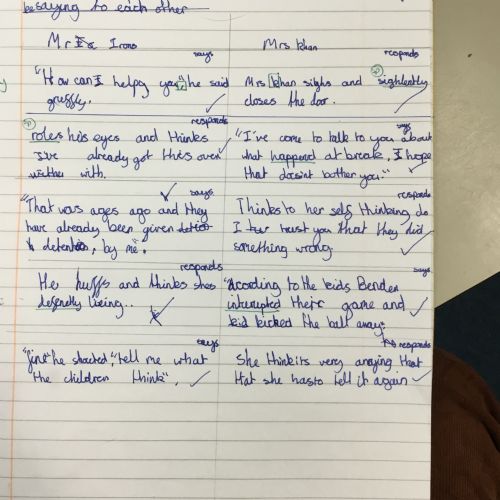 be saying to each other
Mr Irons
Mrs khan
says
responds
"How can I help you," he said
gruffly.
Mrs khan sighs and sightently
closes the door.
responds
says
roles his eyes and thinks
I've already got this over
with.
"I've come to talk to you about
what happend at break, I hope
that doesint bother you."
says
responds
"That was ages ago and they
have already been given
detention, by me".
Thinks to her self thinking do
I trust you that they did
something wrong.
responds
says
He huffs and thinks shes
defenetly lieing..
"Acording to the kids Benden
interrupted their game and
kid kicked the ball away"
says
responds
"fine" he shocted, "tell me what
the children think".
She think its very anoying that
that she has to tell it again